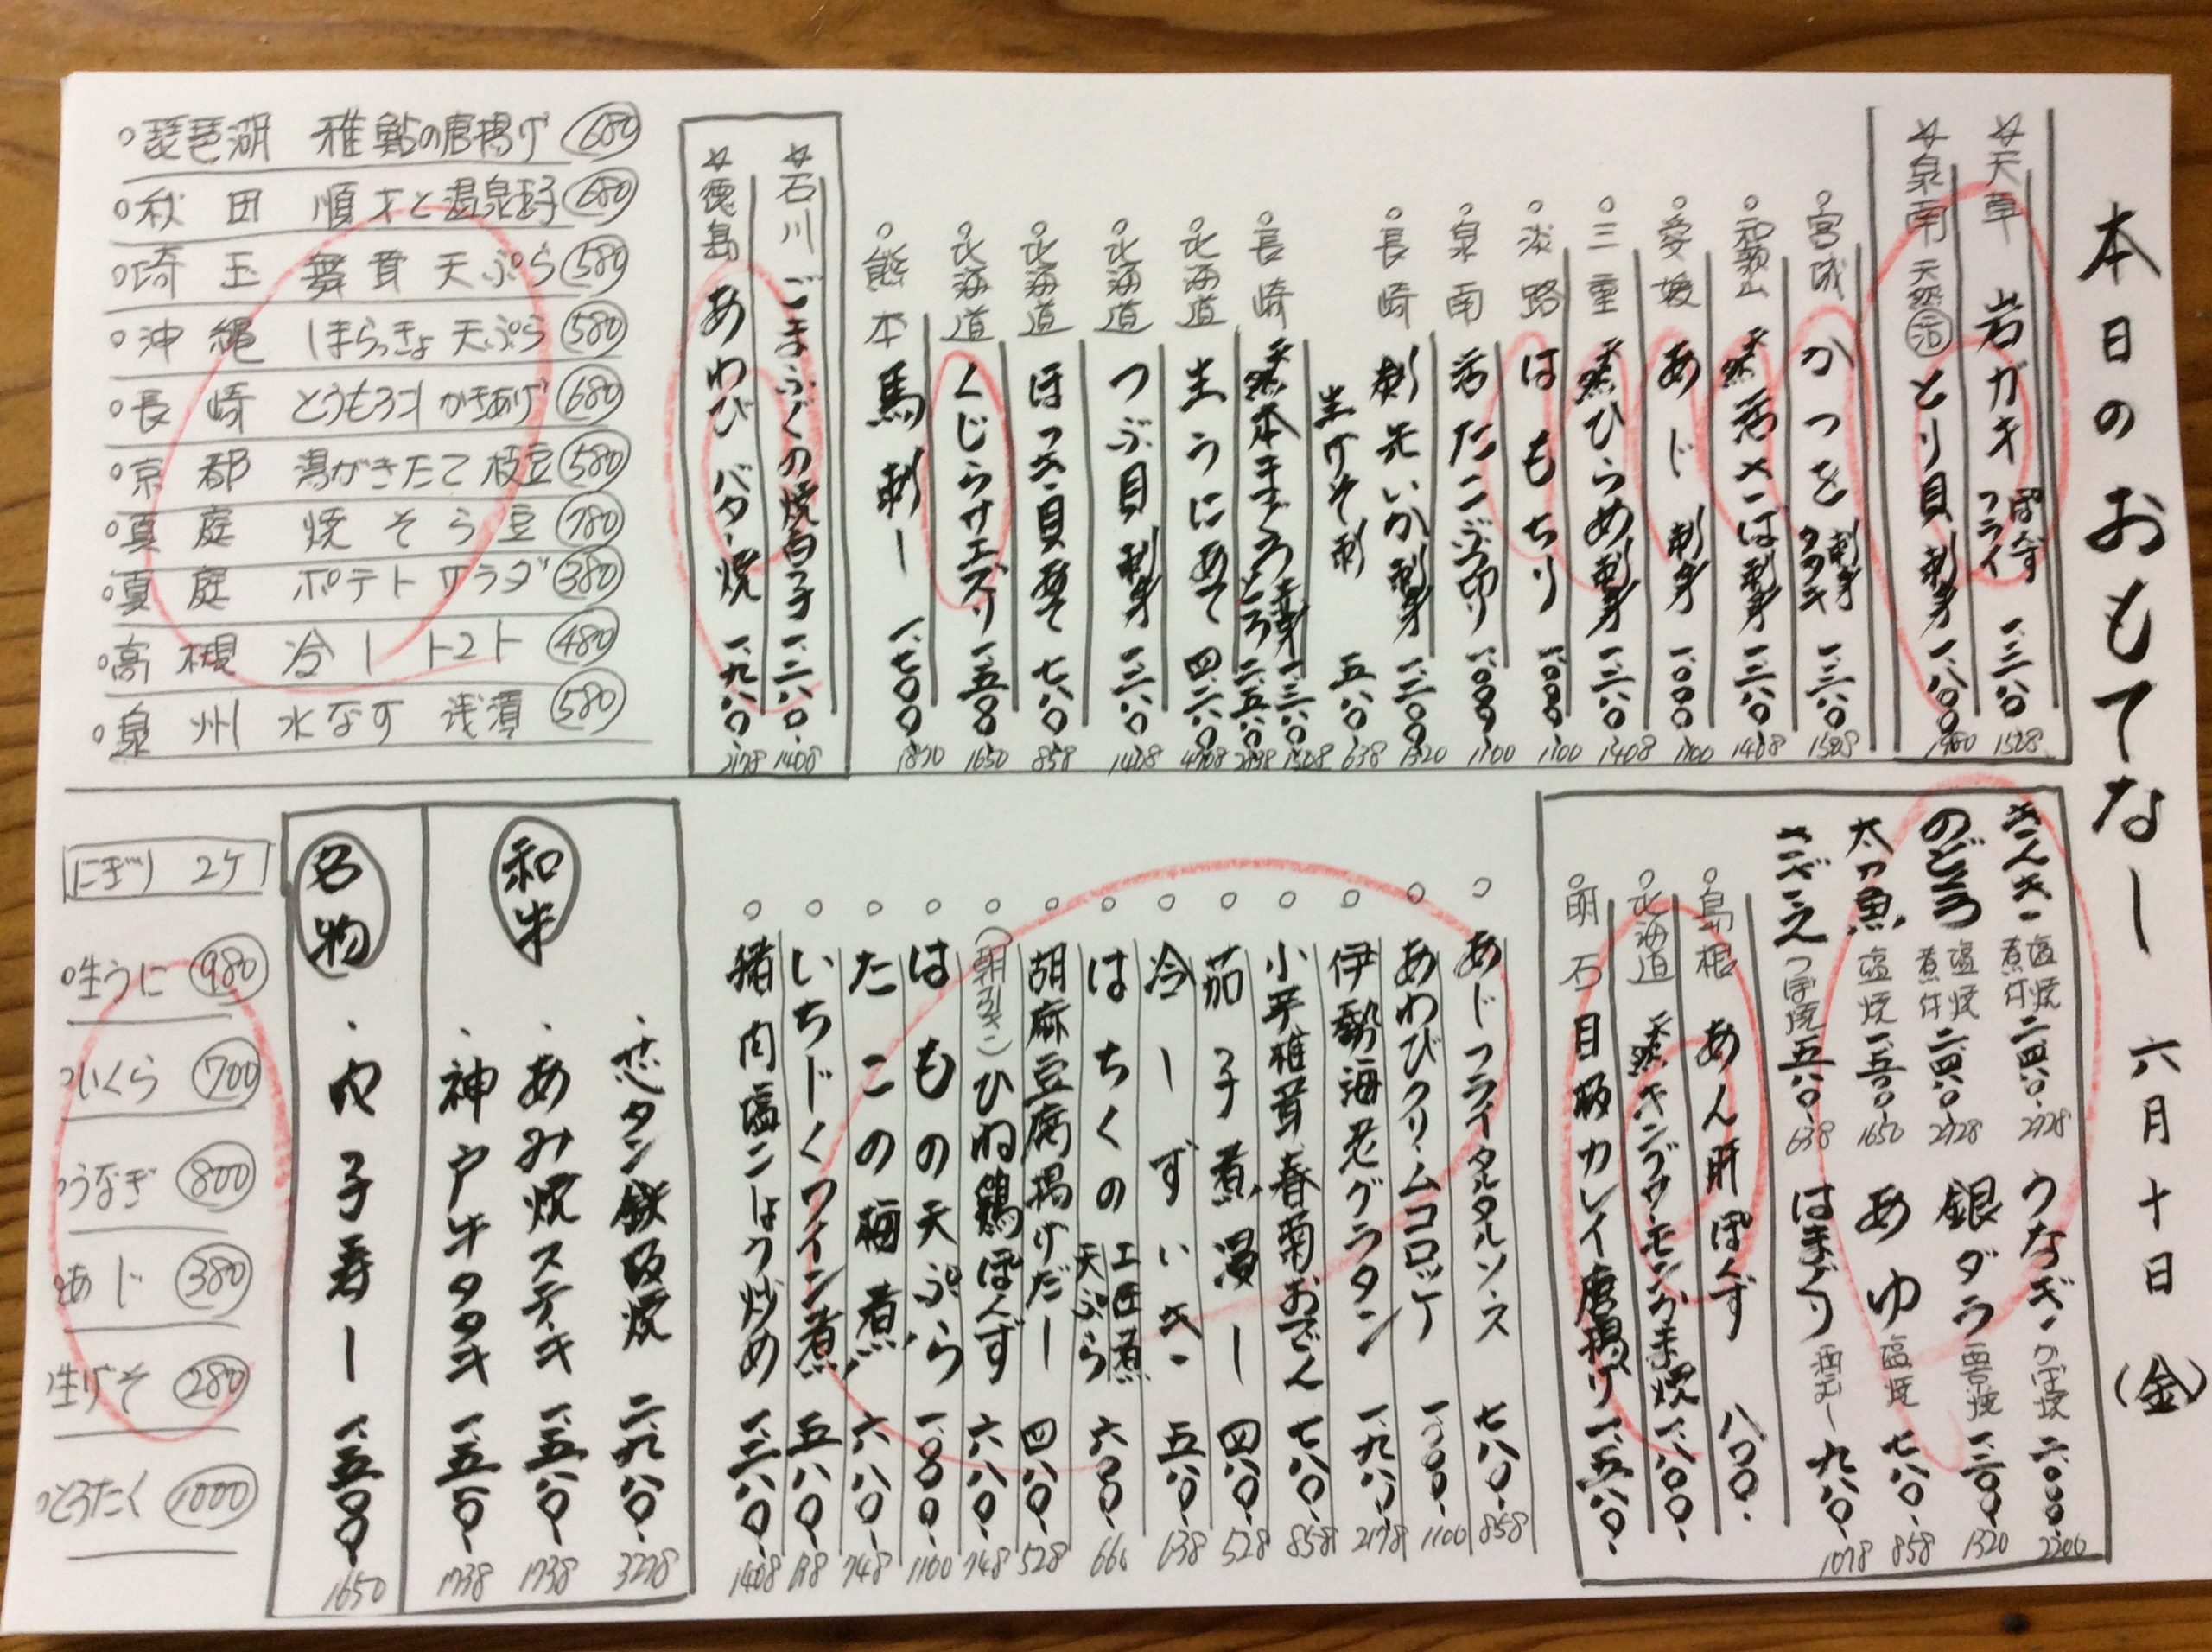 本日のおもてなし 六月十日(金)
☆天草 岩ガキ ぽんず フライ 一、三八〇 1518
☆泉南 天然 活 とり貝 刺身 一、八〇〇 1980
宮城 かつを 刺身 タタキ 一、三八〇 1518
和歌山 天然 活さば 刺身 一、二八〇 1408
愛媛 あじ 刺身 一、〇〇〇 1100
三重 天然 ひらめ 刺身 一、二八〇 1408
淡路 はもちり 一、〇〇〇 1100
泉南 活たこぶつ切り 一、〇〇〇 1100
長崎 剣先いか 刺身 一、二〇〇 1320
生げそ刺 五八〇 638
長崎 天然 本まぐろ 赤身 一、三八〇 1518
とろ 二、五八〇 2838
北海道 生うにあて 四、二八〇 4708
北海道 つぶ貝 刺身 一、二八〇 1408
北海道 ほっき貝あて 七八〇 858
北海道 くじらサエズリ 一、五〇〇 1650
熊本 馬刺し 一、七〇〇 1870
☆石川 ごまふぐの焼白子 一、二八〇 1408
☆徳島 あわび バター焼 一、九八〇 2178
琵琶湖 稚鮎の唐揚げ 680
秋田 順才と温泉玉子 680
埼玉 舞茸天ぷら 580
沖縄 しまらっきょ天ぷら 580
長崎 とうもろこし かきあげ 680
京都 湯がきたて枝豆 580
真庭 焼そら豆 780
真庭 ポテトサラダ 380
高槻 冷しトマト 480
泉州 水なす 浅漬 580
きんき 塩焼 煮付 二、四八〇 2728
のどぐろ 塩焼 煮付 二、四八〇 2728
太刀魚 塩焼 一、五〇〇 1650
さざえ つぼ焼 五八〇 638
うなぎ かば焼 二、〇〇〇 2200
銀ダラ 西京焼 一、二〇〇 1320
あゆ 塩焼 七八〇 858
はまぐり 酒むし 九八〇 1078
島根 あん肝ぽんず 八〇〇
北海道 天然 キングサーモンかま焼 一、八〇〇
明石 目板カレイ唐揚げ 一、五八〇
あじフライタルタルソース 七八〇 858
あわびクリームコロッケ 一、〇〇〇 1100
伊勢海老グラタン 一、九八〇 2178
小芋椎茸春菊おでん 七八〇 858
茄子煮浸し 四八〇 528
冷しずいき 五八〇 638
はちくの 土佐煮 天ぷら 六〇〇 660
胡麻豆腐揚げだし 四八〇 528
(朝引き)ひね鶏ぽんず 六八〇 748
はもの天ぷら 一、〇〇〇 1100
たこの梅煮 六八〇 748
いちじくワイン煮 五八〇
猪肉塩こしょう炒め 一、二八〇 1408
和牛
・芯タン鉄板焼 二、九八〇 3278
・あみ焼ステーキ 一、五八〇 1738
・神戸牛タタキ 一、五八〇 1738
名物
・穴子寿し 一、五〇〇 1650
にぎり 2ケ
生うに 980
いくら 700
うなぎ 800
あじ 380
生げそ 280
とろたく 1000